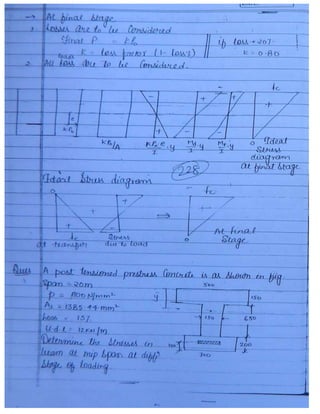 → At final stage
1. Losses are to be Considered
final P = kP₀
k = loss factor (1 - loss)
if loss = 20%
k = 0.80
2. All loss are to be Considered.
e
kP₀
kP₀/A
kP₀ e/I . y
Md/I . y
Ml/I . y
fc
0 Ideal
Stress
diagram
at final stage
228
Ideal Stress diagram
0
fc
at transfer
Stress
due to load
⇒
- fc
At final
0 Stage
Ques A post tensioned prestress Concrete is as shown in fig.
Span = 20m
P = 800 N/mm²
As = 1385.44 mm²
Loss = 15%
U.d.l = 12 KN/m
Determine the stresses in
beam at mid span at diff.
stage of loading.
500
ȳ
150
150
650
100
200
300